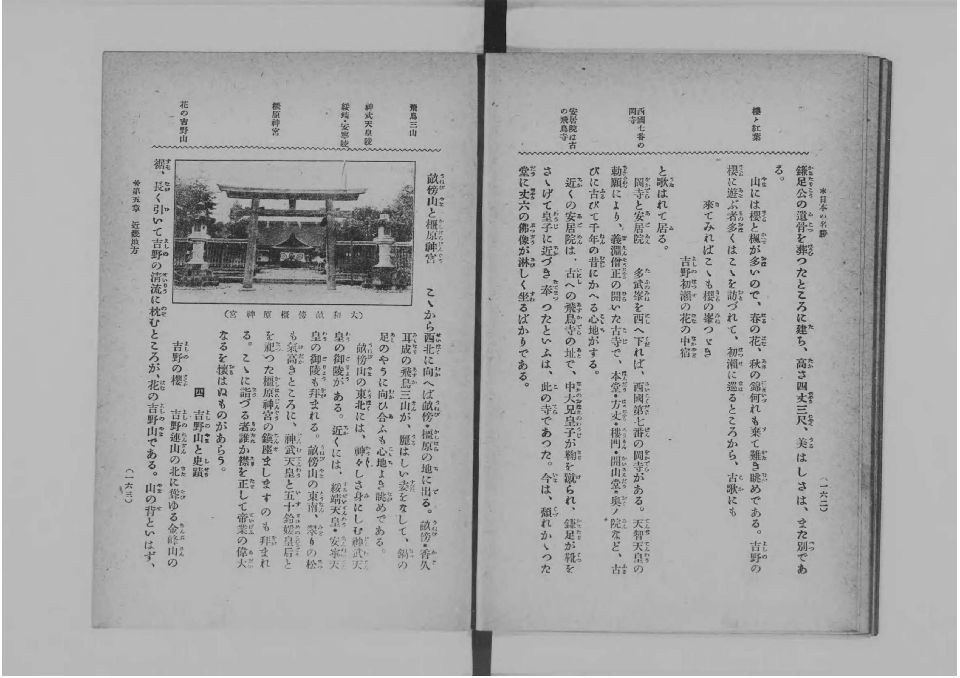 ※日本の名勝
(一六二)
櫻と紅葉
西國七番の
岡寺
安居院は古
の飛鳥寺
鎌足公の遺骨を葬つたところに建ち、高さ四丈三尺、美はしさは、また別であ
る。
山には櫻と楓が多いので、春の花、秋の錦何れも棄て難き眺めである。吉野の
櫻に遊ぶ者多くはこゝを訪づれて、初瀬に巡るところから、古歌にも
來てみればこゝも櫻の峯つゞき
吉野初瀬の花の中宿
と歌はれて居る。
岡寺と安居院 多武峯を西へ下れば、西國第七番の岡寺がある。天智天皇の
勅願により、義淵僧正の開いた古寺で、本堂・方丈・樓門・開山堂・奥ノ院など、古
びに古びて千年の昔にかへる心地がする。
近くの安居院は、古への飛鳥寺の址で、中大兄皇子が鞠を蹴られ、鎌足が靴を
さゝげて皇子に近づき奉つたといふは、此の寺であつた。今は、頽れかゝつた
堂に丈六の佛像が淋しく坐るばかりである。
飛鳥三山
神武天皇陵
綏靖・安寧陵
橿原神宮
花の吉野山
畝傍山と橿原神宮 こゝから西北に向へば畝傍・橿原の地に出る。畝傍・香久
耳成の飛鳥三山が、麗はしい姿をなして、鍋の
足のやうに向ひ合ふも心地よき眺めである。
畝傍山の東北には、神々しさ身にしむ神武天
皇の御陵がある。近くには、綏靖天皇・安寧天
皇の御陵も拜まれる。畝傍山の東南、翠りの松
も氣高きところに、神武天皇と五十鈴媛皇后と
を祀つた橿原神宮の鎮座ましますのも拜まれ
る。こゝに詣づる者誰か襟を正して帝業の偉大
なるを懐はぬものがあらう。
(大和畝傍橿原神宮)
四 吉野山と史蹟
吉野の櫻 吉野連山の北に聳ゆる金峰山の
裾、長く引いて吉野の清流に枕むところが、花の吉野山である。山の背といはず、
※第五章 近畿地方
(一六三)